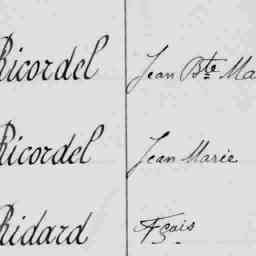 Ricordel Jean Bte Ma
Ricordel Jean Marie
Ridard Fçais